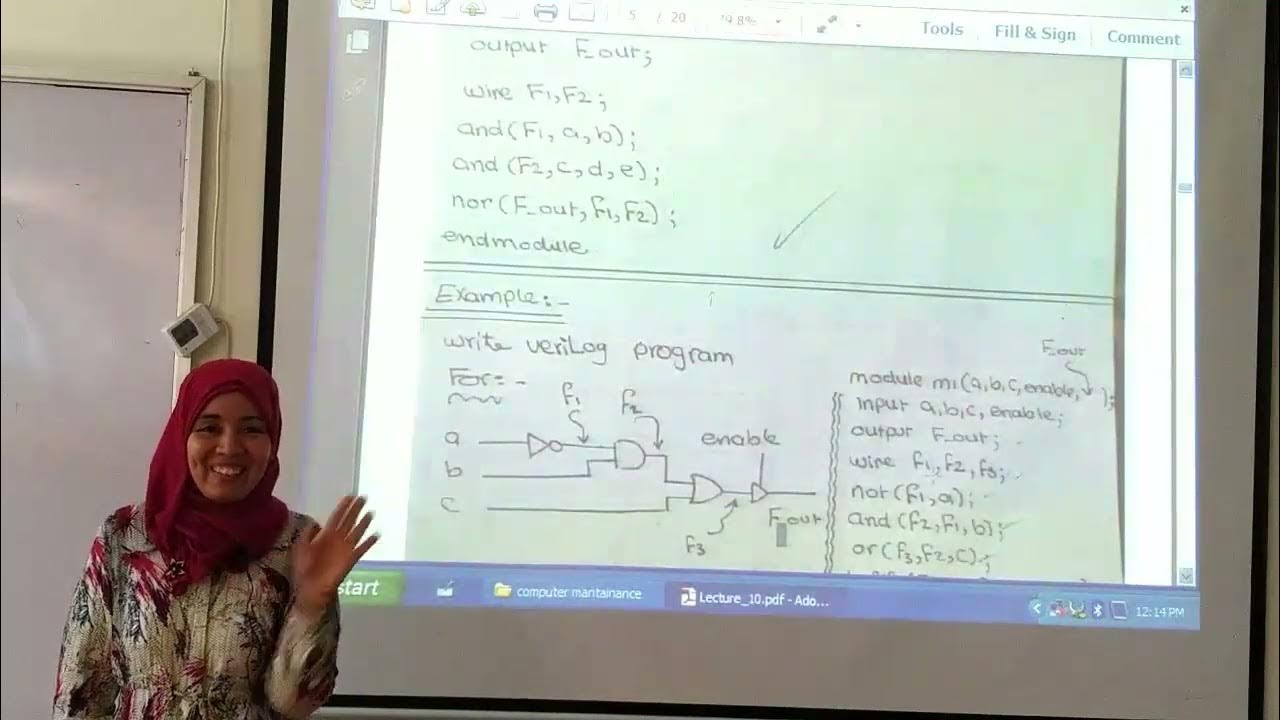 5 / 20
Tools Fill & Sign Comment
output F_out;
wire F1,F2;
and(F1, a, b);
and (F2,c,d,e);
nor(F_out, F1,F2);
endmodule
Example:-
write verilog program
For:-
f1 f2
a
b
c
enable
f3
F_out
F_out
module m1(a,b,c,enable, );
input a,b,c, enable;
output F_out;
wire f1,f2,f3;
not(f1,a);
and (f2,f1,b);
or(f3,f2,c);
start computer mantainance Lecture_10.pdf - Ado... 12:14 PM